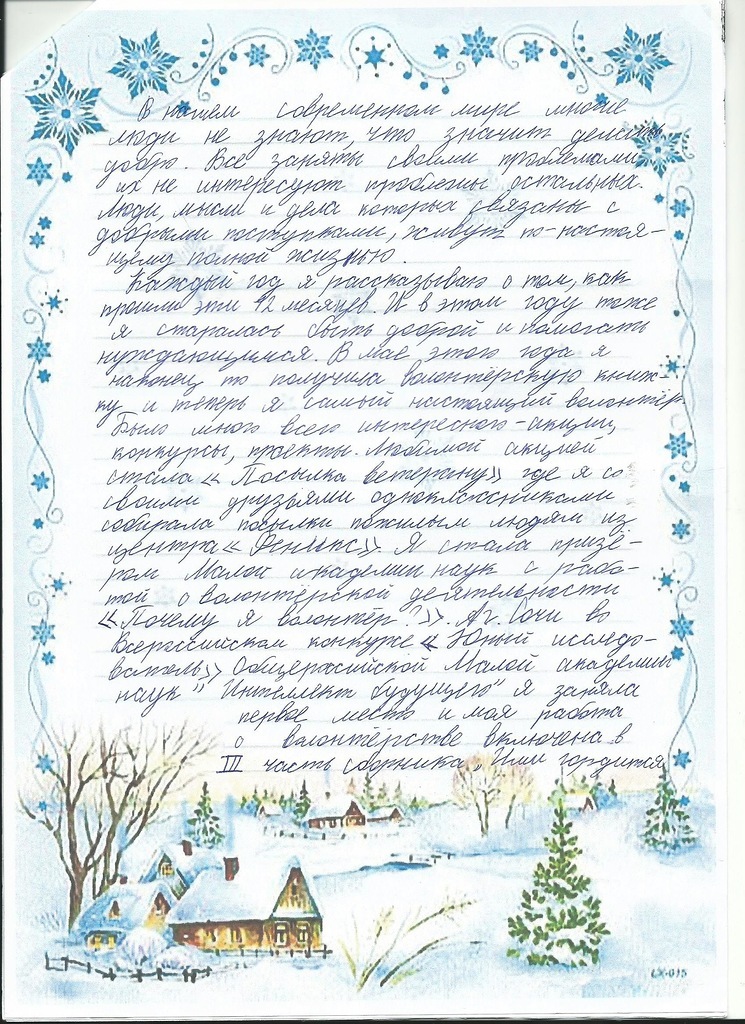 В нашем современном мире многие
люди не знают, что значит делать
добро. Все заняты своими проблемами
их не интересуют проблемы остальных.
Люди, мысли и дела которых связаны с
добрыми поступками, живут по-настоя-
щему полной жизнью.
Каждый год я рассказываю о том, как
прошли эти 12 месяцев. И в этом году тоже
я старалась быть доброй и помогать
нуждающимся. В мае этого года я
наконец то получила волонтёрскую книж-
ку и теперь я самый настоящий волонтёр.
Было много всего интересного-акции,
конкурсы, проекты. Любимой акцией
стала «Посылка ветерану» где я со
своими друзьями одноклассниками
собирала посылки пожилым людям из
центра «Феникс». Я стала призё-
ром Малой академии наук с рабо-
той о волонтёрской деятельности
«Почему я волонтёр?». А г. Сочи во
Всероссийском конкурсе «Юный исследо-
ватель» Общероссийской Малой академии
наук "Интеллект будущего" я заняла
первое место и моя работа
о волонтёрстве включена в
III часть сборника „Ими гордится
LX-015